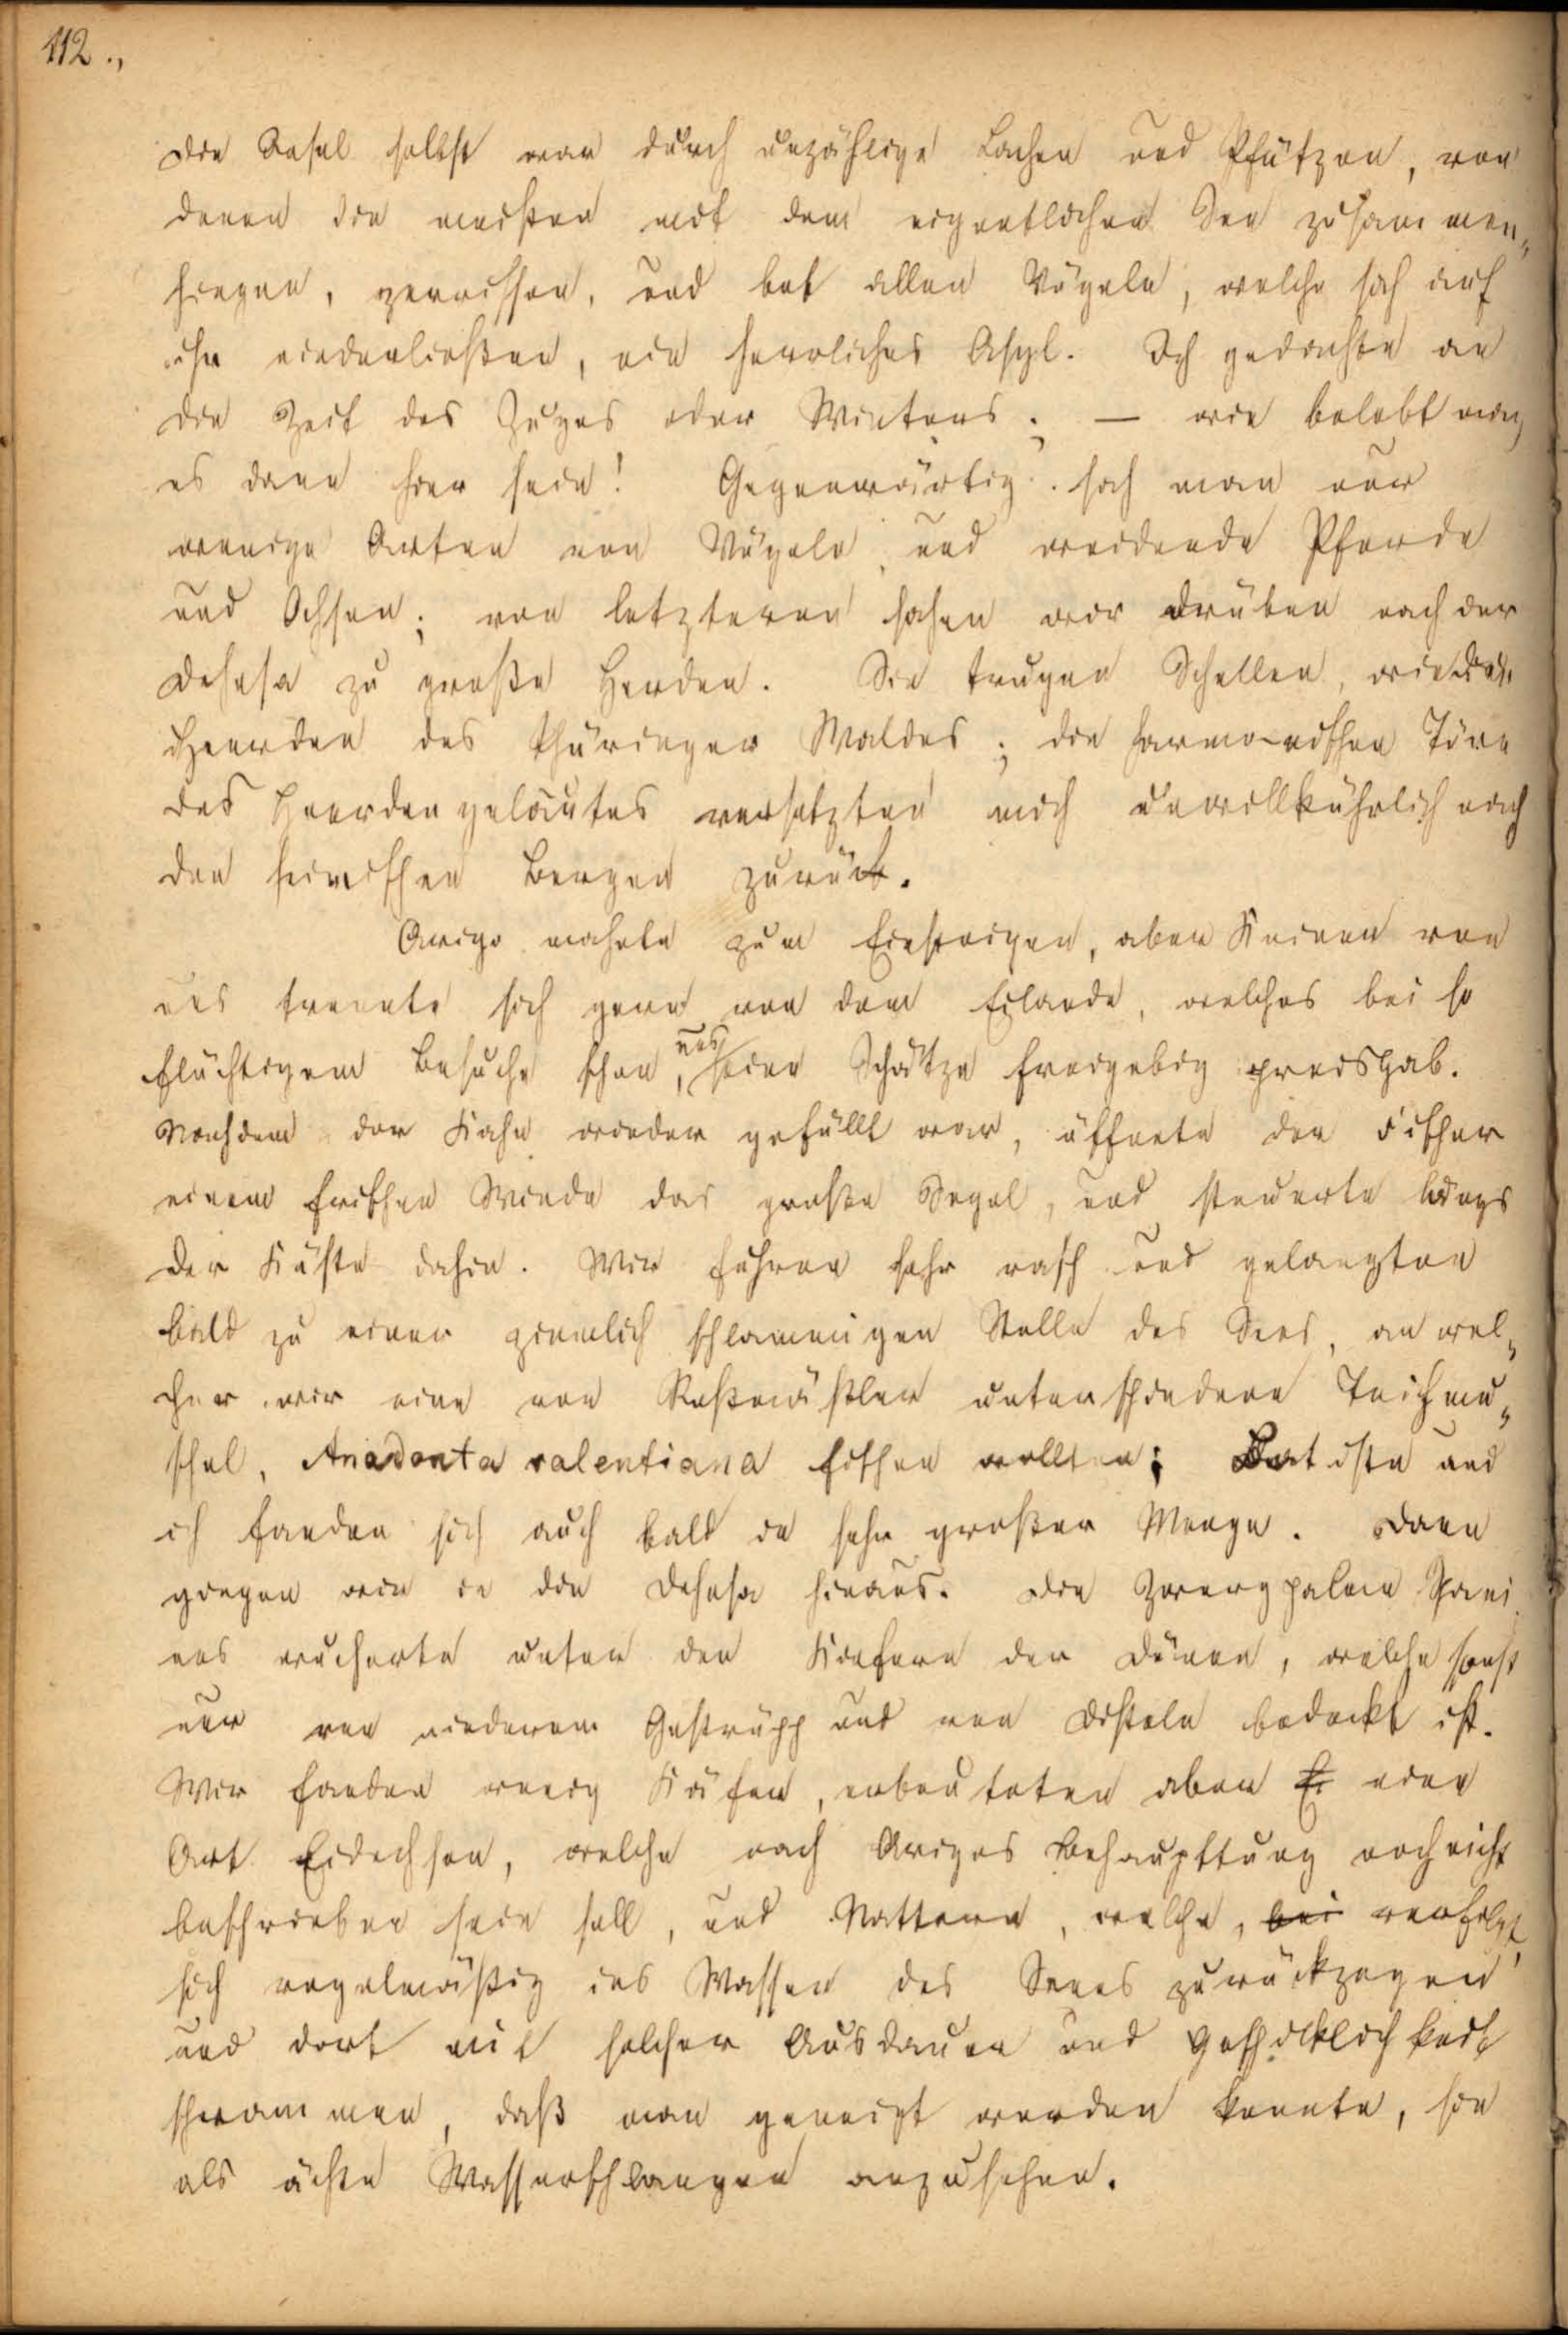 112.,
Die Insel selbst war durch unzählige Lachen und Pfützen, von
denen die meisten mit dem eigentlichen See zusammen„
hingen, zerrissen, und bot allen Vögeln, welche sich auf
ihr niederließen, ein herrliches Asyl. Ich gedachte an
die Zeit des Zuges oder Winters; — wie belebt mag
es dann hier sein! Gegenwärtig sah man nur
wenige Arten von Vögeln und weidende Pferde
und Ochsen; von letzteren sahen wir drüben nach der
Dehesa zu große Herden. Sie trugen Schellen, wie die
Heerden des Thüringer Waldes; die harmonischen Töne
des Heerdengeläutes versetzten mich unwillkührlich nach
den heimischen Bergen zurück.
Arigo mahnte zum Einsteigen, aber Keiner von
uns trennte sich gern von dem Eilande, welches bei so
flüchtigem Besuche schon uns seine Schätze freigebig preisgab.
Nachdem der Kahn wieder gefüllt war, öffnete der Fischer
einem frischen Winde das große Segel, und steuerte längs
der Küste dahin. Wir fuhren sehr rasch und gelangten
bald zu einer ziemlich schlammigen Stelle des Sees, an wel„
cher wir eine von Roßmäßler unterschiedene Teichmu„
schel, Anodonta valentiana fischen wollten; Batista und
ich fanden sich auch bald in sehr großer Menge. Dann
gingen wir in die Dehesa hinaus. Die Zwergpalme Spani
ens wucherte unter den Kiefern der Dünen, welche sonst
nur von niederem Gestrüpp und von Disteln bedeckt ist.
Wir fanden wenig Käfer, erbeuteten aber Ei eine
Art Eidechsen, welche nach Arigos Behaupttung noch nicht
beschrieben sein soll, und Nattern, welche, bei verfolgt,
sich regelmäßig ins Wasser des Sees zurückzogen
und dort mit solcher Ausdauer und Geschicklichkeit
schwammen, daß man geneigt werden konnte, sie
als ächte Wasserschlangen anzusehen.